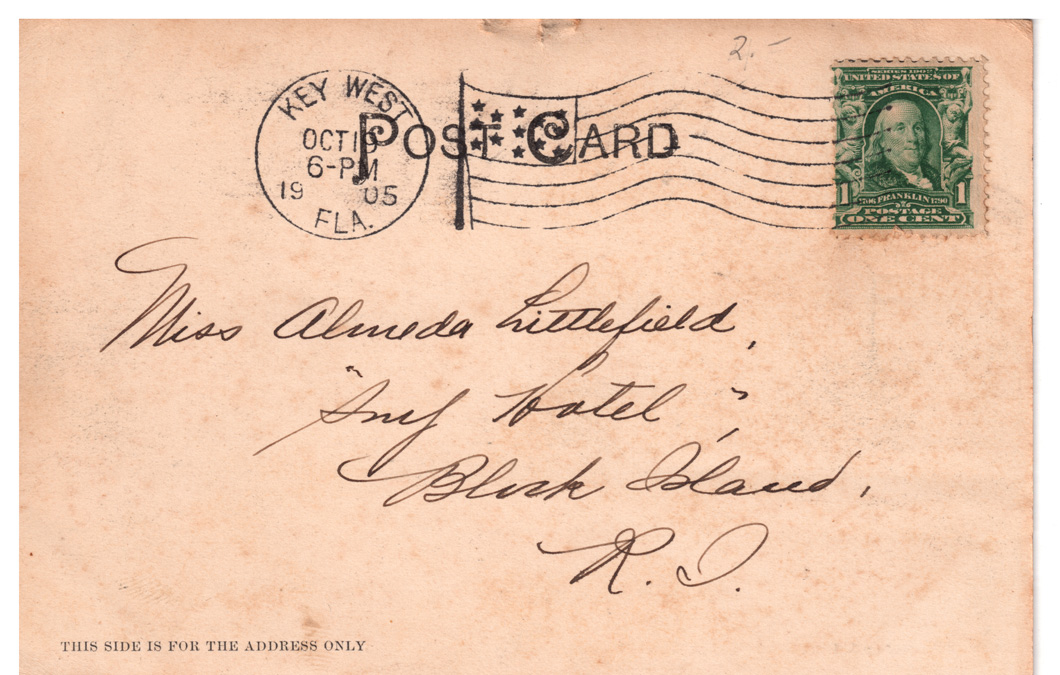 2.-
KEY WEST
OCT 16
6-PM
1905
FLA.
POST CARD
SERIES 1902
UNITED STATES OF
AMERICA
1 1
1706 FRANKLIN 1790
POSTAGE
ONE CENT
Miss Almeda Littlefield,
" Hotel",
Block Island,
R. I.
THIS SIDE IS FOR THE ADDRESS ONLY